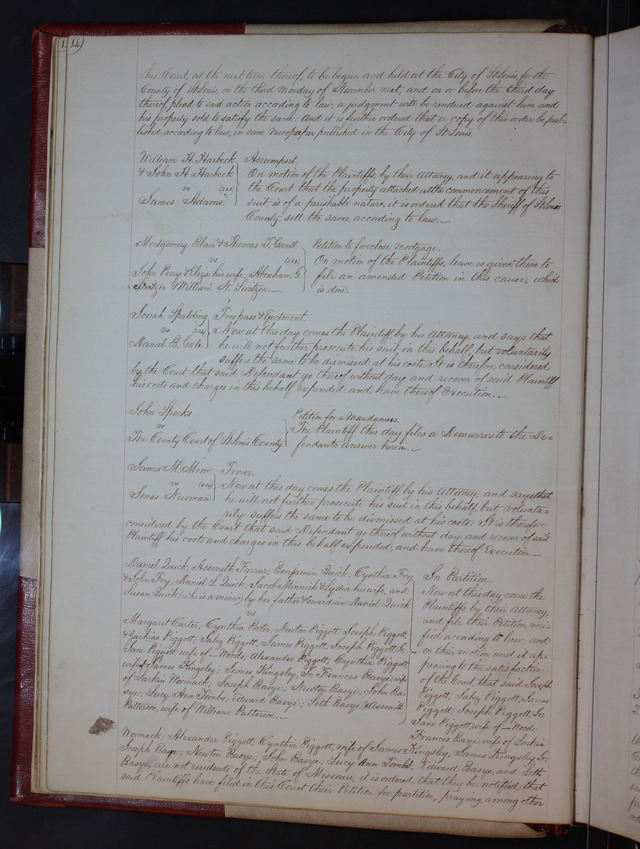 14
this Court, at the next term thereof, to be begun and held at the City of St Louis, for the
County of St Louis, on the third Monday of November next, and on or before the third day
thereof plead to said action according to law, a judgment will be rendered against him, and
his property sold to satisfy the same. And it is further ordered that a copy of this order be pub-
lished, according to law, in some newspaper published in the City of St Louis.
William H. Harbeck
& John H. Harbeck
vs
James Adams.
Assumpsit.
On motion of the Plaintiffs, by their Attorney, and it appearing to
the Court that the property attached at the commencement of this
suit, is of a perishable nature, it is ordered that the Sheriff of St Louis
County sell the same, according to law.
Montgomery Blair & Thomas T. Gantt
vs
John Perry & Eliza his wife, Abraham G.
Switzer & William N. Switzer.
Petition to foreclose mortgage.
On motion of the Plaintiffs, leave is given them to
file an amended Petition in this cause, which
is done.
Josiah Spalding
vs
Daniel E.
Trespass & Ejectment
Now at this day comes the Plaintiff by his Attorney, and says that
he will not further prosecute his suit, in this behalf, but voluntarily
suffers the same to be dismissed at his costs. It is therefore considered
by the Court that said Defendant go thereof without day and recover of said Plaintiff
his costs and charges in this behalf expended, and have thereof Execution.
John Sparks
vs
The County Court of St Louis County
Petition for a Mandamus.
The Plaintiff this day files a Demurrer to the De-
fendants answer herein.
James M.
vs
Jonas Newman
Trover.
Now at this day comes the Plaintiff by his Attorney, and says that
he will not further prosecute his suit in this behalf, but volunta-
rily suffers the same to be dismissed at his costs. It is therefore
considered by the Court that said Defendant go thereof without day and recover of said
Plaintiff his costs and charges in this behalf expended, and have thereof Execution.
Daniel Quick, Asseneth Farrar, Benjamin Quick, Cynthia Fry
& John Fry, Daniel L. Quick, Jacob Minnick & Lydia his wife, and
Susan Quick (who is a minor) by her father & Guardian Daniel Quick
vs
Margaret Carter, Cynthia Porter, Newton Piggott, Joseph Piggott,
& Zachias Piggott, Juby Piggott, James Piggott, Joseph Piggott, Jr.,
Jane Piggott, wife of — Woods, Alexander Piggott, Cynthia Piggott,
wife of James Kingsley, James Kingsley, Jr. Frances Basye, wife
of Larkin Wormack, Joseph Basye, Newton Basye, John Ba-
sye, Lucy Ann Tombs, Edward Basye, Seth Basye & Asseneth
Patterson, wife of William Patterson.
In Partition.
Now at this day come the
Plaintiffs by their Attorney,
and file their Petition, veri-
fied according to law, and
on their motion and it ap-
pearing to the satisfaction
of the Court that said Joseph
Piggott, Juby Piggott, James
Piggott, Joseph Piggott, Jr.
Jane Piggott, wife of — Woods,
Frances Basye, wife of Larkin
Wormack, Alexander Piggott, Cynthia Piggott, wife of James Kingsley, James Kingsley, Jr.
Joseph Basye, Newton Basye, John Basye, Lucy Ann Tombs, Edward Basye, and Seth
Basye, are not residents of the State of Missouri, it is ordered, that they be notified, that
said Plaintiffs have filed in this Court their Petition for partition, praying among other